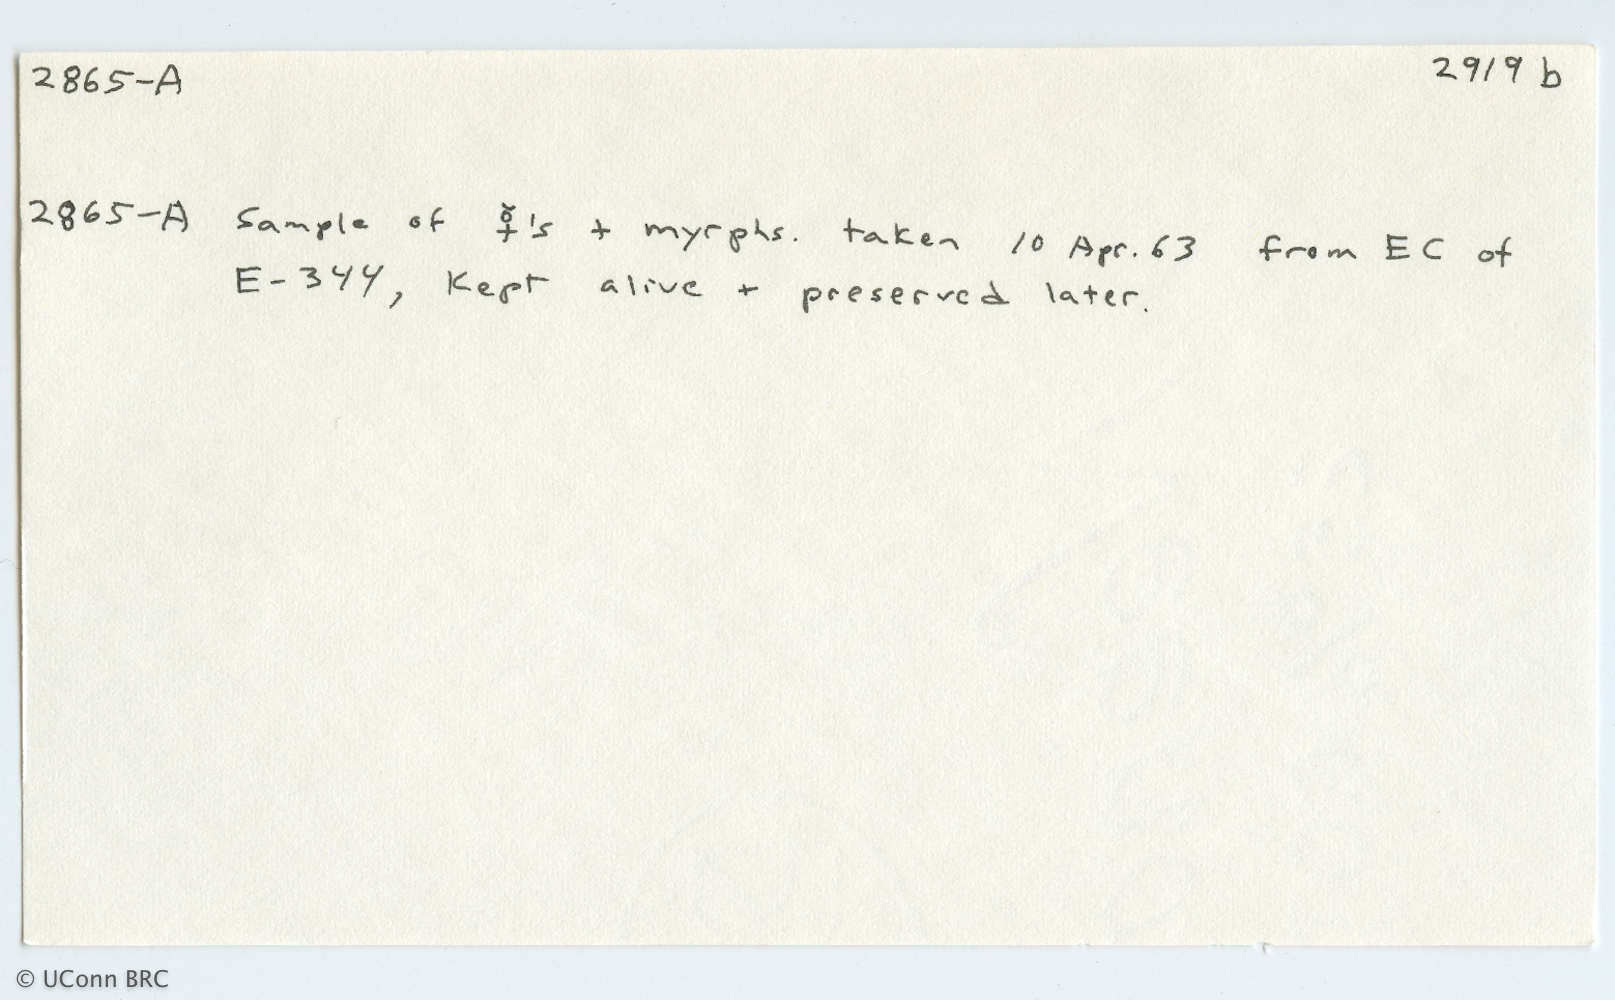 2865-A 2919 b
2865-A Sample of ☿'s + myrphs. taken 10 Apr. 63 from EC of
E-344, Kept alive + preserved later.
© UConn BRC